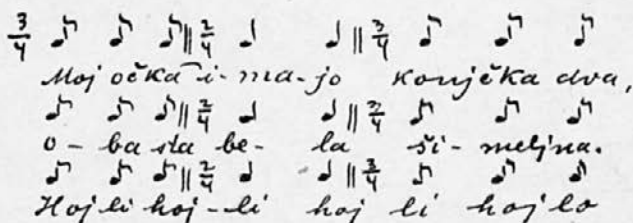 3/4 ♪ ♪ ♪ || 2/4 ♩ ♩ || 3/4 ♪ ♪ ♪
Moj očka i-ma-jo konjčka dva,
♪ ♪ ♪ || 2/4 ♩ ♩ || 3/4 ♪ ♪ ♪
o-ba sta be-la ši-meljna.
♪ ♪ ♪ || 2/4 ♩ ♩ || 3/4 ♪ ♪ ♪
Hoj li hoj-li hoj li hoj lo